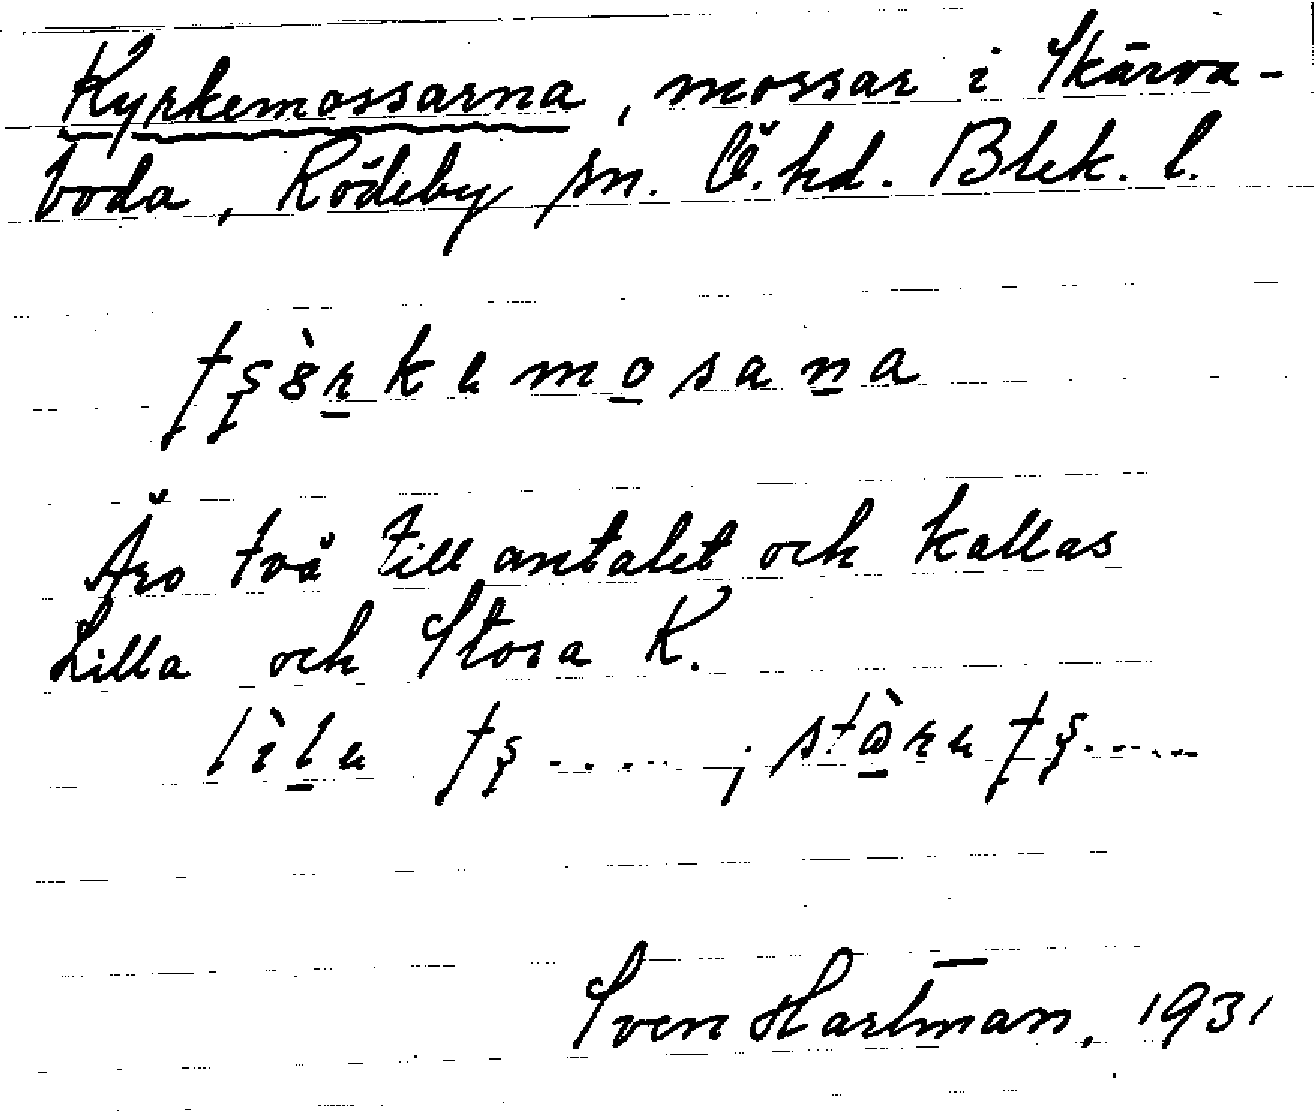 Kyrkemossarna, mossar i Skärva-
boda, Rödeby sn. Ö. hd. Blek. l.
Äro två till antalet och kallas
Lilla och Stora K.
Sven Hartman, 1931